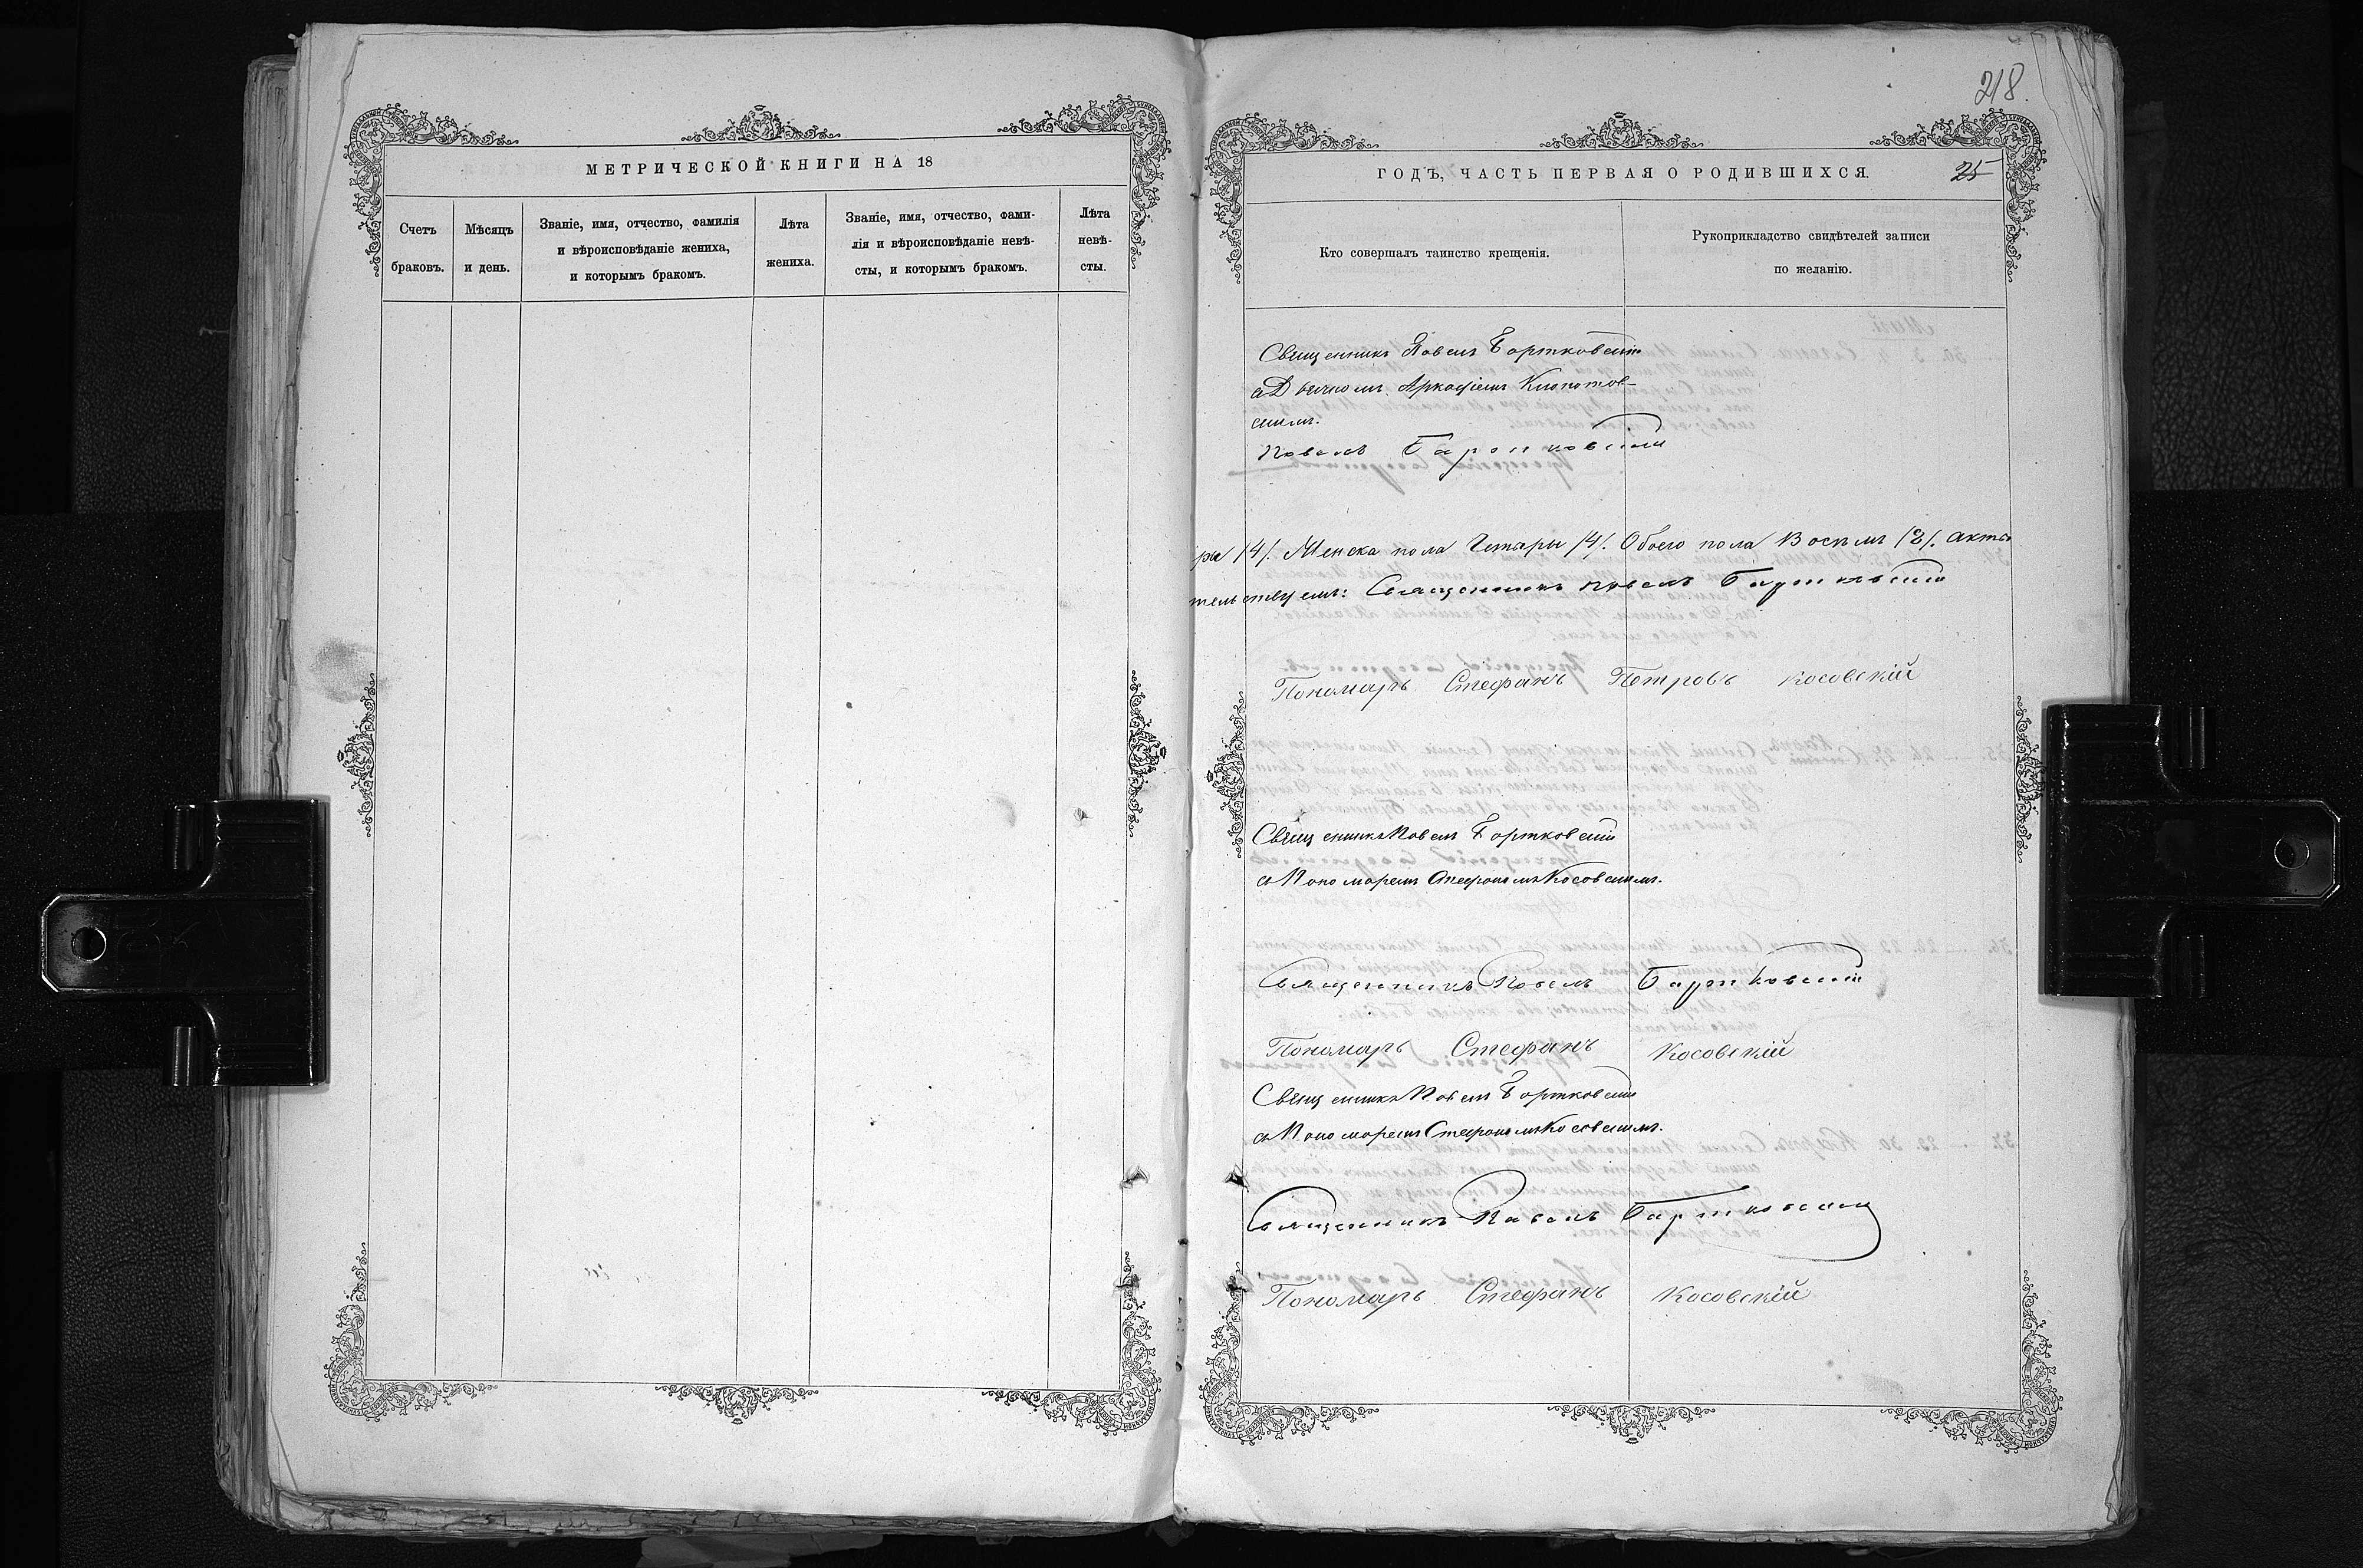 МЕТРИЧЕСКОЙ КНИГИ НА 18
Счетъ браковъ.
Мѣсяцъ и день.
Званіе, имя, отчество, фамилія
и вѣроисповѣданіе жениха,
и которымъ бракомъ.
Лѣта жениха.
Званіе, имя, отчество, фами-
лія и вѣроисповѣданіе невѣ-
сты, и которымъ бракомъ.
Лѣта невѣ-
сты.
218.
ГОДЪ, ЧАСТЬ ПЕРВАЯ О РОДИВШИХСЯ.
25
Кто совершалъ таинство крещенія.
Рукоприкладство свидѣтелей записи
по желанію.
Священникъ Павелъ Бартковскій
съ Дьячкомъ Аркадіемъ Клопотов-
скимъ.
Павелъ Бартковскій
ры /4/. Женска пола Четыри /4/. Обоего пола Восемь /8/. Акты
тельствуемъ: Священникъ Павелъ Бартковскій
Пономарь Стефанъ Петровъ Косовскій
Священникъ Павелъ Бартковскій
съ Пономаремъ Стефаномъ Косовскимъ.
Священникъ Павелъ Бартковскій
Пономарь Стефанъ Косовскій
Священникъ Павелъ Бартковскій
съ Пономаремъ Стефаномъ Косовскимъ.
Священникъ Павелъ Бартковскій
Пономарь Стефанъ Косовскій